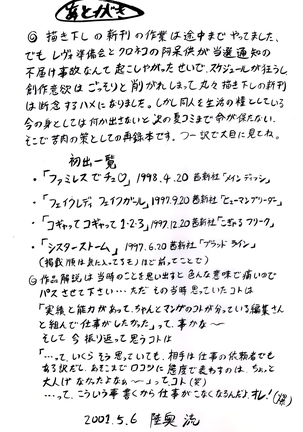 あとがき
◎ 描き下しの新刊の作業は途中までやってました、
でもレヴォ準備会とクロネコの阿呆供が当選通知の
不届け事故なんて起こしやがったせいで、スケジュールが狂うし
創作意欲はごっそりと削がれしまって丸々描き下しの新刊
は断念するハメになりました。しかし同人を生活の糧としている
今の身としては何か出さないと次の夏コミまで命が保たない、
そこで苦肉の策としての再録本です。つー訳で大目に見てね。
初出一覧
・「ファミレスでチュ♡」1998.4.20 茜新社「メインディッシュ」
・「フェイクレディ フェイクガール」1997.9.20 茜新社「ヒューマンブリーダー」
・「コギャってコギャって1・2・3」1997.12.20 茜新社「こぎゃるフリーク」
・「シスターストーム」1997.6.20 茜新社「ブラッドライン」
(掲載順は気に入ってるモノほど前ってことで)
◎ 作品解説は当時のことを思い出すと色んな意味で痛いので
パスさせて下さい… ただその当時思っていたコトは
「実績と能力があって、ちゃんとマンガのコトが分っている編集さん
と組んで仕事がしたかった」って、事かな〜
そして今振り返って思うコトは
「…って、いくらそう思っていても、相手は仕事の依頼者でも
ある訳だし、あそこまでロコツに態度で表わすのは、ちょっと
大人げなかったよなぁ〜」ってコト(笑)
…って、こういう事書くから仕事がこなくなるんだよ、オレ!(爆)
2001.5.6 陸奥 流